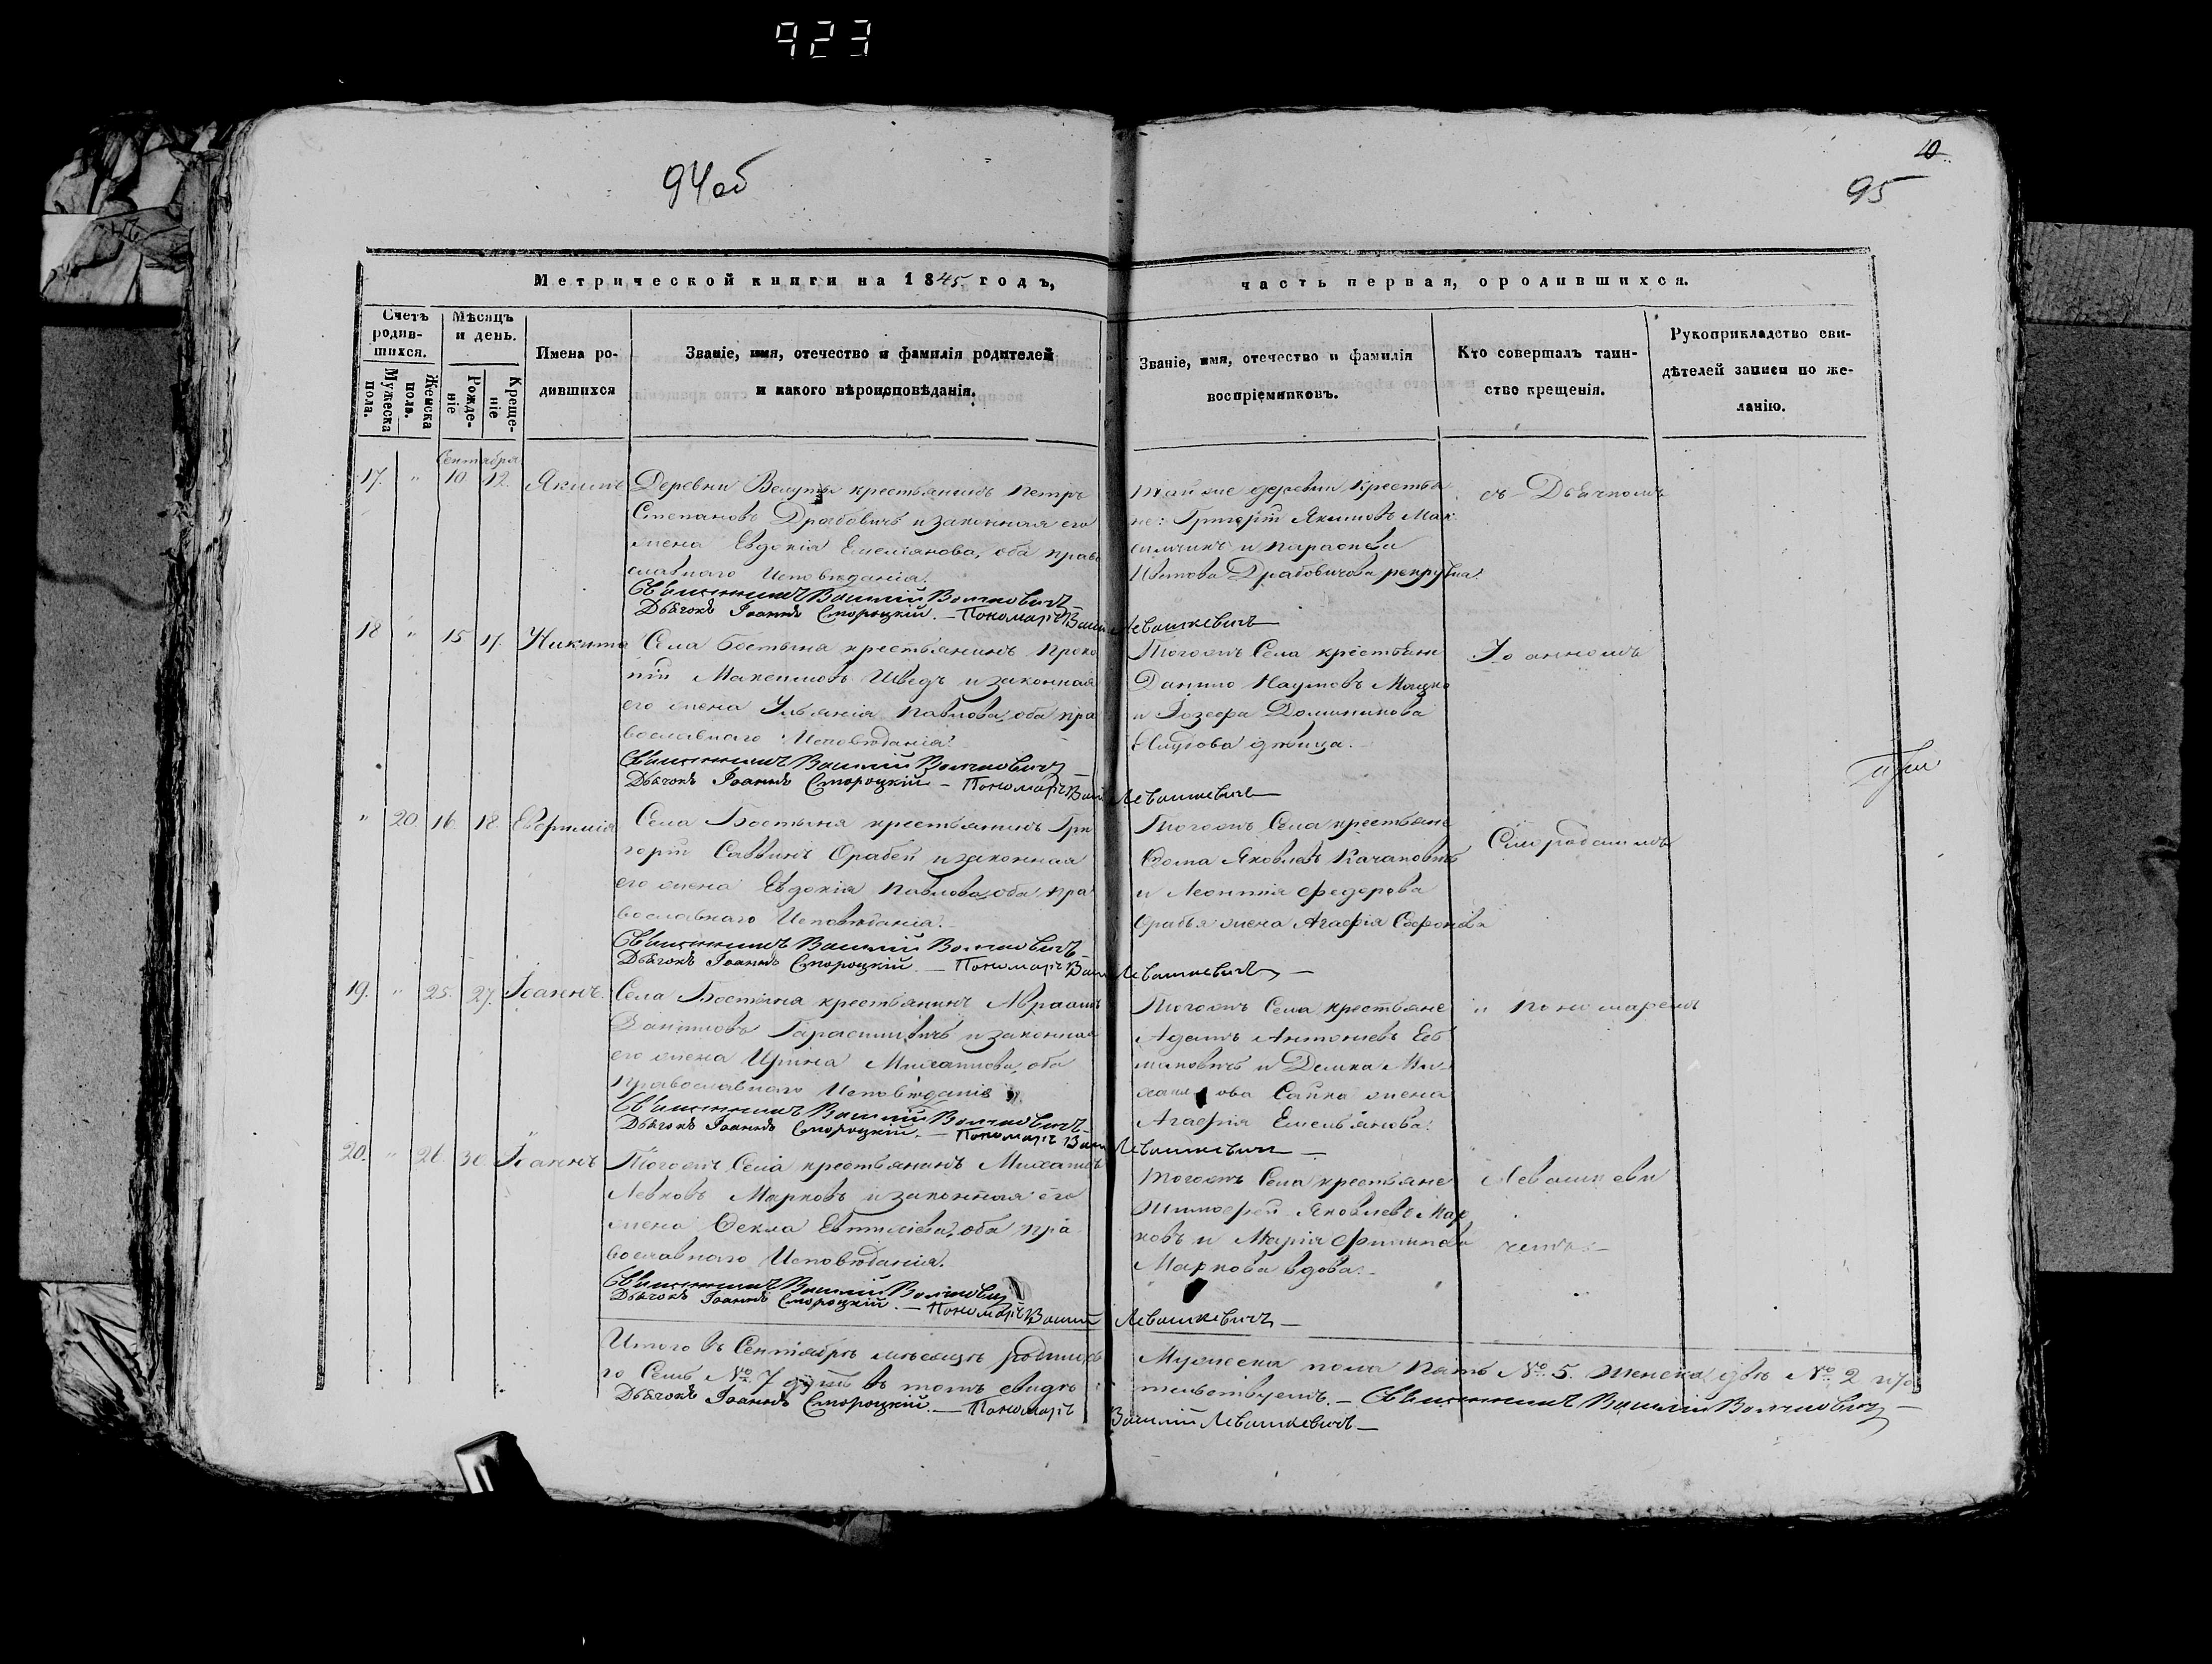 923
94об
10
95
Метрической книги на 1845 годъ,
часть первая, о родившихся.
Счетъ родив-шихся.
Мужеска пола.
Женска пола.
Мѣсяцъ и день.
Рожде-ніе
Креще-ніе
Имена ро-
дившихся
Званіе, имя, отечество и фамилія родителей
и какого вѣроисповѣданія.
Званіе, имя, отечество и фамилія
воспріемниковъ.
Кто совершалъ таин-
ство крещенія.
Рукоприкладство сви-
дѣтелей записи по же-
ланію.
Сентября
17. " 10 12. Якимъ Деревни крестьянинъ Петръ
Степановъ Драбовичъ и законная его
жена Евдокія Емеліянова, оба право
славнаго Исповѣданія.
Священникъ Василій Волчковичъ
Дьячокъ Іоаннъ Смороцкій. — Пономарь Васил Левашкевичъ
Тойже деревни крестья
не: Григорій Якимовъ Мак
симчикъ и Параскева
Драбовичова рекрутка.
съ Дьячкомъ
18 " 15 17. Никита Села Бостыня крестьянинъ Проко
пій Максимовъ Шведъ и законная
его жена Ульянія Павлова, оба пра
вославнаго Исповѣданія.
Священникъ Василій Волчковичъ
Дьячокъ Іоаннъ Смороцкій — Пономарь Васил Левашкевичъ
Тогожъ Села крестьяне
Данило Наумовъ
и Іозефа Доминикова
дѣвица.
Іоанномъ
" 20. 16 18. Евфимія Села Бостыня крестьянинъ Гри
горій Саввинъ Орабей и законная
его жена Евдокія Павлова, оба пра
вославнаго Исповѣданія.
Священникъ Василій Волчковичъ
Дьячокъ Іоаннъ Смороцкій. — Пономарь Васил Левашкевичъ —
Тогожъ Села крестьяне
Ѳома Яковлевъ Качановичъ
и Леонтія Федорова
Орабья жена Агафія Софронова
19. " 25. 27. Іоаннъ. Села Бостыня крестьянинъ Авраамъ
Даниловъ Гарасимовичъ и законная
его жена Ирина Михаилова, оба
православнаго Исповѣданія
Священникъ Василій Волчковичъ
Дьячокъ Іоаннъ Смороцкій. — Пономарь Васил Левашкевичъ —
Тогожъ Села крестьяне
Адамъ Антоніевъ
и Демка Ми-
хаилова жена
Агафія Емельянова.
и Пономаремъ
20. " 26. 30. Іоаннъ Тогожъ Села крестьянинъ Михаилъ
Левковъ Марковъ и законная его
жена Ѳекла Евтихіева, оба пра
вославнаго Исповѣданія.
Священникъ Василій Волчковичъ
Дьячокъ Іоаннъ Смороцкій. — Пономарь Василій Левашкевичъ —
Тогожъ Села крестьяне
Тимофей Яковлевъ Мар
ковъ и Марія Филипова
Маркова вдова.
Левашкеви
чемъ. —
Итого въ Сентябрѣ мѣсяцѣ родилось
Мужеска пола пять № 5. Женска двѣ № 2
го Семь № 7 душъ въ томъ свидѣ
тельствуемъ. — Священникъ Василій Волчковичъ —
Дьячокъ Іоаннъ Смороцкій. — Пономарь
Василій Левашкевичъ —